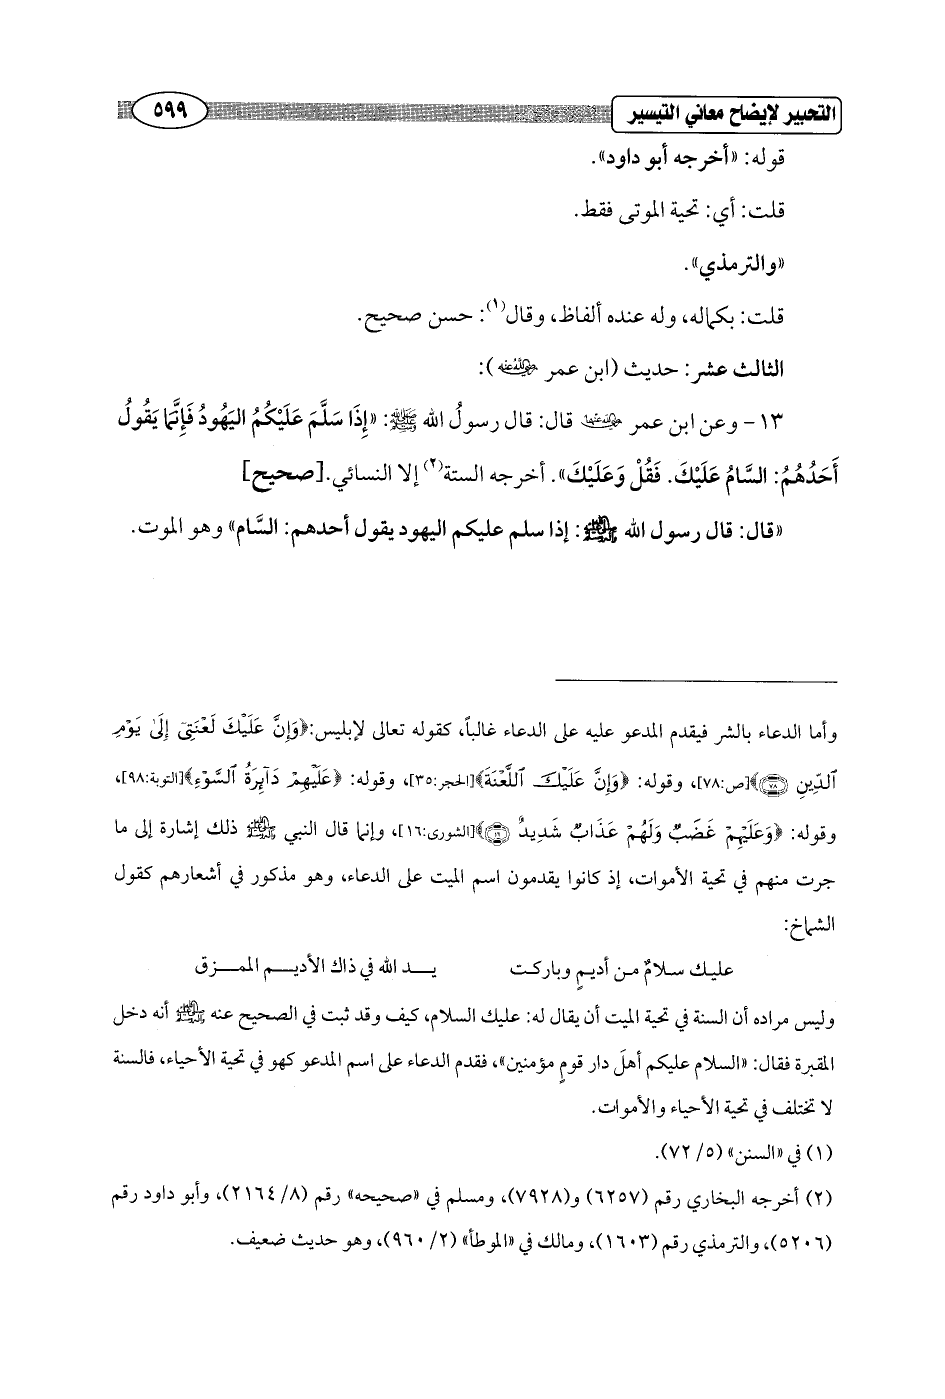 التحبير لإيضاح معاني التيسير ٥٩٩
قوله: «أخرجه أبو داود».
قلت: أي: تحية الموتى فقط.
«والترمذي».
قلت: بكماله، وله عنده ألفاظ، وقال(١): حسن صحيح.
الثالث عشر: حديث (ابن عمر رضي الله عنه):
١٣- وعن ابن عمر رضي الله عنهما قال: قال رسولُ الله ﷺ: «إِذَا سَلَّمَ عَلَيْكُمُ اليَهُودُ فَإِنَّمَا يَقُولُ
أَحَدُهُمُ: السَّامُ عَلَيْكَ. فَقُلْ وَعَلَيْكَ». أخرجه الستة(٢) إلا النسائي.[صحيح]
«قال: قال رسول الله ﷺ: إذا سلم عليكم اليهود يقول أحدهم: السَّام» وهو الموت.
وأما الدعاء بالشر فيقدم المدعو عليه على الدعاء غالباً، كقوله تعالى لإبليس:﴿وَإِنَّ عَلَيْكَ لَعْنَتِي إِلَى يَوْمِ
الدِّينِ ٧٨﴾[ص:٧٨]، وقوله: ﴿وَإِنَّ عَلَيْكَ اللَّعْنَةَ﴾[الحجر:٣٥]، وقوله: ﴿عَلَيْهِمْ دَآئِرَةُ السَّوْءِ﴾[التوبة:٩٨]،
وقوله: ﴿وَعَلَيْهِمْ غَضَبٌ وَلَهُمْ عَذَابٌ شَدِيدٌ ١٦﴾[الشورى:١٦]، وإنما قال النبي ﷺ ذلك إشارة إلى ما
جرت منهم في تحية الأموات، إذ كانوا يقدمون اسم الميت على الدعاء، وهو مذكور في أشعارهم كقول
الشماخ:
عليك سلامٌ من أديمٍ وباركت يد الله في ذاك الأديم الممزق
وليس مراده أن السنة في تحية الميت أن يقال له: عليك السلام، كيف وقد ثبت في الصحيح عنه ﷺ أنه دخل
المقبرة فقال: «السلام عليكم أهلَ دار قومٍ مؤمنين»، فقدم الدعاء على اسم المدعو كهو في تحية الأحياء، فالسنة
لا تختلف في تحية الأحياء والأموات.
(١) في «السنن» (٥/ ٧٢).
(٢) أخرجه البخاري رقم (٦٢٥٧) و(٧٩٢٨)، ومسلم في «صحيحه» رقم (٨/ ٢١٦٤)، وأبو داود رقم
(٥٢٠٦)، والترمذي رقم (١٦٠٣)، ومالك في «الموطأ» (٢/ ٩٦٠)، وهو حديث ضعيف.